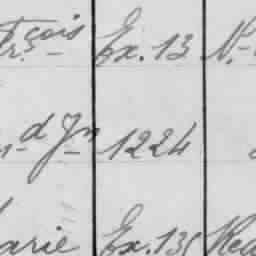 çois
Fr.s- Ex. 13 N.-
n-d Jn 1224
arie Ex. 135 Rea